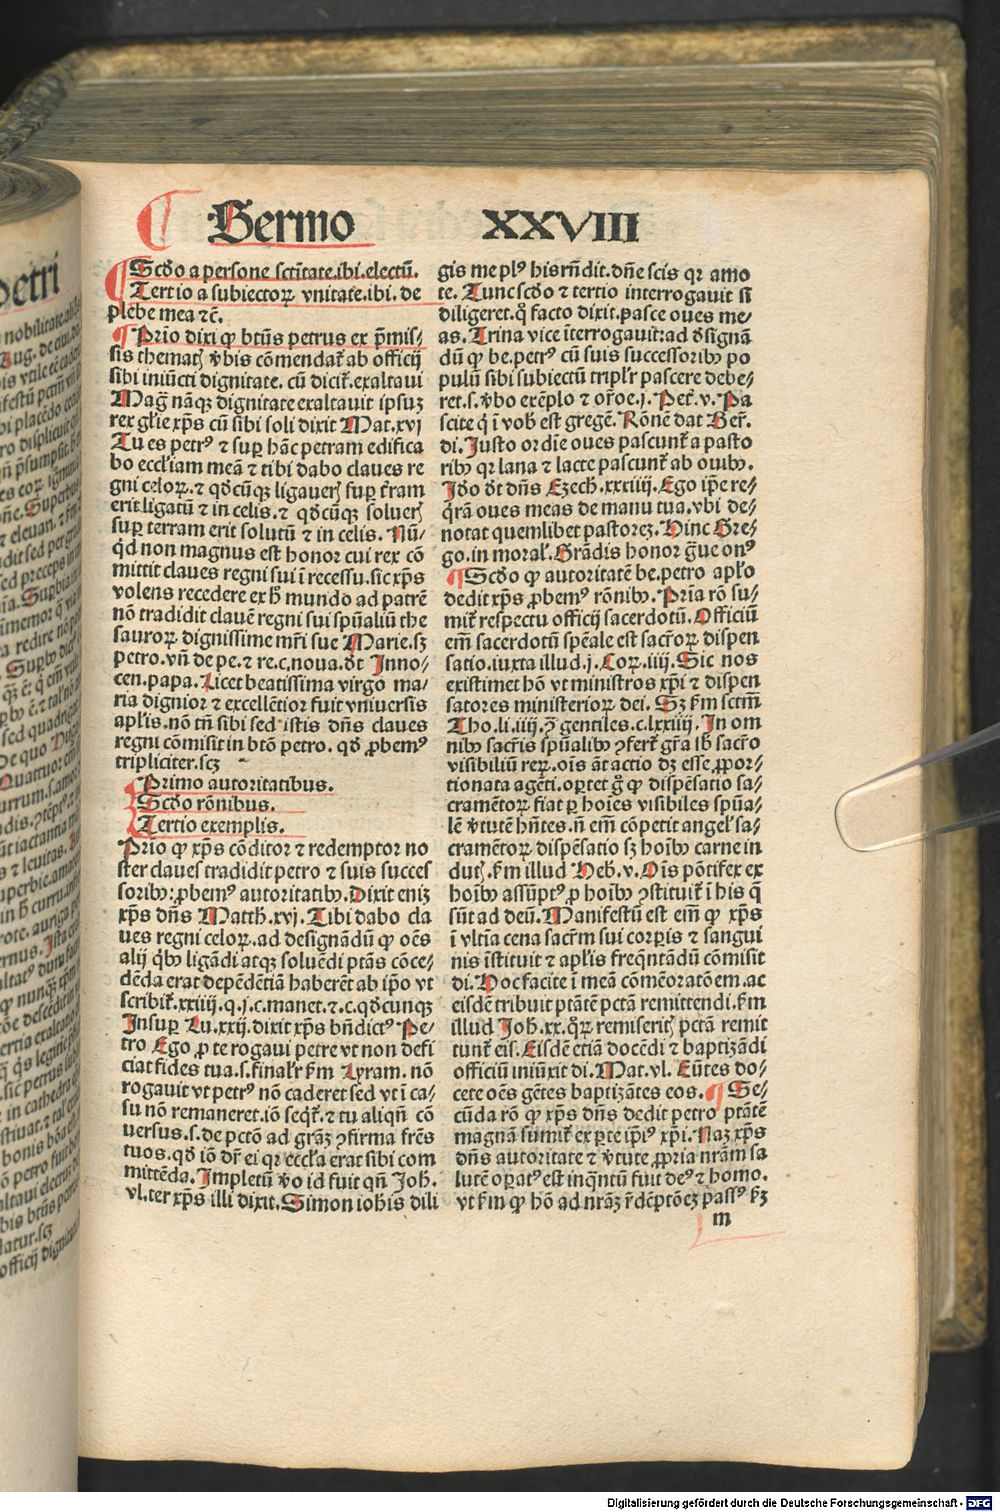 Sermo XXVIII
Scdo a persone sctitate.ibi.electũ.
Tertio a subiectoꝝ vnitate.ibi.de
plebe mea ⁊c̃.
Prio dixi ꝙ btũs petrus ex p̃mis⸗
sis thematꝭ v̓bis cõmendat᷑ ab officij
sibi iniũcti dignitate. cũ dicit᷑.exaltaui
Mag̃ nãqꝫ dignitate exaltauit ipsuꝫ
rex gl̃ie xp̃s cũ sibi soli dixit Mat.xvj
Tu es petrꝰ ⁊ suꝑ hãc petram edifica
bo eccl̓iam meã ⁊ tibi dabo claues re
gni celoꝝ.⁊ qđcũqꝫ ligauerꝭ suꝑ t̓ram
erit ligatũ ⁊ in celis.⁊ qđcũqꝫ soluerꝭ
suꝑ terram erit solutũ ⁊ in celis. Nũ⸗
q̇d non magnus est honor cui rex cõ
mittit claues regni sui ĩ recessu.sic xp̃s
volens recedere ex ħ mundo ad patrẽ
nõ tradidit clauẽ regni sui sp̃ualiũ the
sauroꝝ dignissime mr̃i sue Marie.sꝫ
petro.vñ de pe.⁊ re.c.noua.đt Inno⸗
cen.papa. Licet beatissima virgo ma⸗
ria dignior ⁊ excellẽtior fuit vniuersis
apl̓is.nõ tñ sibi sed istis dñs claues
regni cõmisit in btõ petro. qđ ꝓbemꝰ
tripliciter.scꝫ
Primo autoritatibus.
Scđo rõnibus.
Tertio exemplis.
Prio ꝙ xp̃s cõditor ⁊ redemptor no
ster claues tradidit petro ⁊ suis succes
soribꝰ:ꝓbemꝰ autoritatibꝰ.Dixit eniꝫ
xp̃s dñs Matth.xvj. Tibi dabo cla
ues regni celoꝝ.ad designãdũ ꝙ oẽs
alij q̇bꝰ ligãdi atqꝫ soluẽdi ptãs cõce⸗
dẽda erat depẽdẽtiã haberẽt ab ip̃o vt
scribit᷑.xxiiij.q.j.c.manet.⁊.c.qđcunqꝫ
Insuꝑ Lu.xxij.dixit xp̃s bñdictꝰ Pe⸗
tro Ego ꝓ te rogaui petre vt non defi
ciat fides tua.s.final̓r ẜm Lyram. nõ
rogauit vt petrꝰ nõ caderet sed vt ĩ ca⸗
su nõ remaneret.iõ seqt᷑.⁊ tu aliqñ cõ
uersus.s.de pctõ ad gr̃aꝫ ꝯfirma fr̃es
tuos.qđ iõ dr̃ ei qꝛ eccl̓ia erat sibi com
mittẽda. Impletũ v̓o id fuit qñ Joh̓.
vl.ter xp̃s illi dixit.Simon ioh̓is dili
gis me plꝰ his rñdit.dñe scis qꝛ amo
te. Tunc scđo ⁊ tertio interrogauit si
diligeret.q̊ facto dixit.pasce oues me⸗
as. Trina vice ĩterrogauit:ad đsignã
dũ ꝙ be.petrꝰ cũ suis successoribꝰ po
pulũ sibi subiectũ tripl̓r pascere debe⸗
ret.s.v̓bo exẽplo ⁊ or̃oe.j. Pet᷑.v. Pa
scite q̇ ĩ vob̓ est gregẽ. Rõnẽ dat Ber̃.
di. Justo ordĩe oues pascunt᷑ a pasto
ribꝰ qꝛ lana ⁊ lacte pascunt᷑ ab ouibꝰ.
Jđo đt dñs Ezech.xxxiiij. Ego ip̃e re⸗
q̇rã oues meas de manu tua.vbi de⸗
notat quemlibet pastoreꝫ. Hinc Gre⸗
go.in moral̓. Grãdis honor g̃ue onꝰ
Scđo ꝙ autoritatẽ be.petro apl̓o
dedit xp̃s ꝓbemꝰ rõnibꝰ. Pr̃ia rõ su⸗
mit᷑ respectu officij sacerdotũ. Officiũ
em̃ sacerdotũ sp̃eale est sacr̃oꝝ dispen
satio.iuxta illud.j. Coꝝ.iiij. Sic nos
existimet hõ vt ministros xp̃i ⁊ dispen
satores ministerioꝝ dei. Sꝫ ẜm sctm̃
Tho.li.iiij.ꝯ gentiles.c.lxxiiij. In om
nibꝰ sacr̃is sp̃ualibꝰ ꝯfert᷑ gr̃a sb̓ sacr̃o
visibiliũ reꝝ.oĩs ãt actio dꝫ esse ꝓpor⸗
tionata agẽti.oꝑtet g̃ ꝙ dispẽsatio sa⸗
cramẽtoꝝ fiat ꝑ hoĩes visibiles sp̃ua⸗
lẽ v̓tutẽ hñtes.ñ em̃ cõpetit angel̓ sa⸗
cramẽtoꝝ dispẽsatio sꝫ hoĩbꝰ carne in
dutꝭ.ẜm illud Heb.v. Oĩs põtifex ex
hoĩbꝰ assũptꝰ ꝑ hoĩbꝰ ꝯstituit᷑ ĩ his q̃
sũt ad deũ. Manifestũ est em̃ ꝙ xp̃s
ĩ vltĩa cena sacr̃m sui corꝑis ⁊ sangui
nis ĩstituit ⁊ apl̓is freqñtãdũ cõmisit
di. Hoc facite ĩ meã cõmẽoratõem.ac
eisdẽ tribuit ptãtẽ pctã remittendi.ẜm
illud Joh̓.xx.q̊ꝝ remiseritꝭ pctã remit
tunt᷑ eis. Eisdẽ etiã docẽdi ⁊ baptizãdi
officiũ iniũxit di. Mat.vl. Eũtes do⸗
cete oẽs gẽtes baptizãtes eos. Se⸗
cũda rõ ꝙ xp̃s dñs dedit petro ptãtẽ
magnã sumit᷑ ex ꝑte ip̃iꝰ xp̃i. Naꝫ xp̃s
dñs autoritate ⁊ v̓tute ꝓpria nr̃am sa
lutẽ oꝑatꝰ est inq̃ntũ fuit deꝰ ⁊ homo.
vt ẜm ꝙ hõ ad nr̃aꝫ r̃dẽptõeꝫ passꝰ ẜꝫ
m
petri
Digitalisierung gefördert durch die Deutsche Forschungsgemeinschaft - DFG